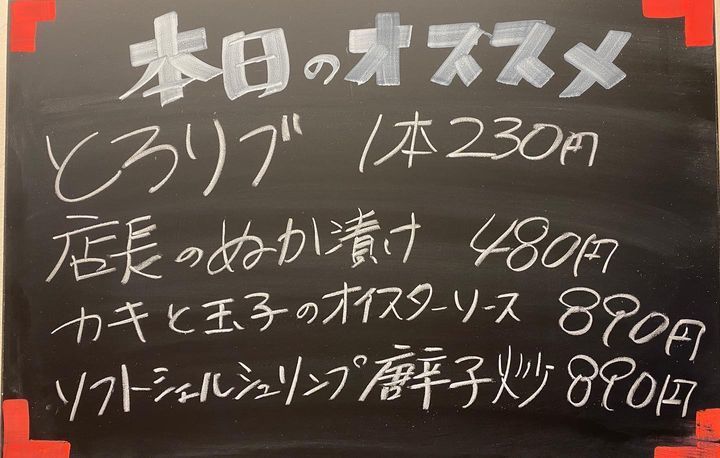 本日のオススメ
とろリブ 1本230円
店長のぬか漬け 480円
カキと玉子のオイスターソース 890円
ソフトシェルシュリンプ唐辛子炒 890円